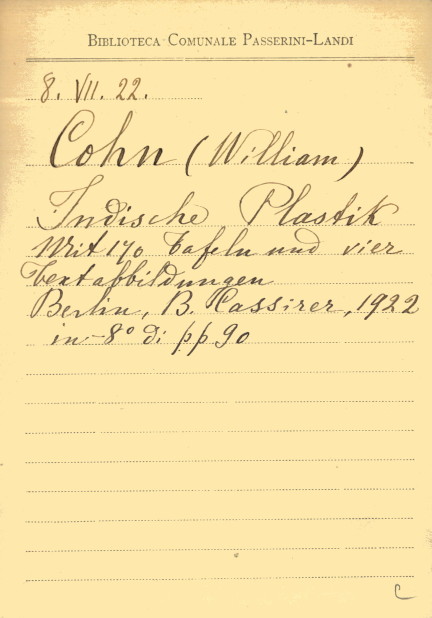 BIBLIOTECA COMUNALE PASSERINI-LANDI
8. VII. 22.
Cohn (William)
Indische Plastik
Mit 170 Tafeln und vier
Textabbildungen
Berlin, B. Cassirer, 1922
in-8° di pp 90
C